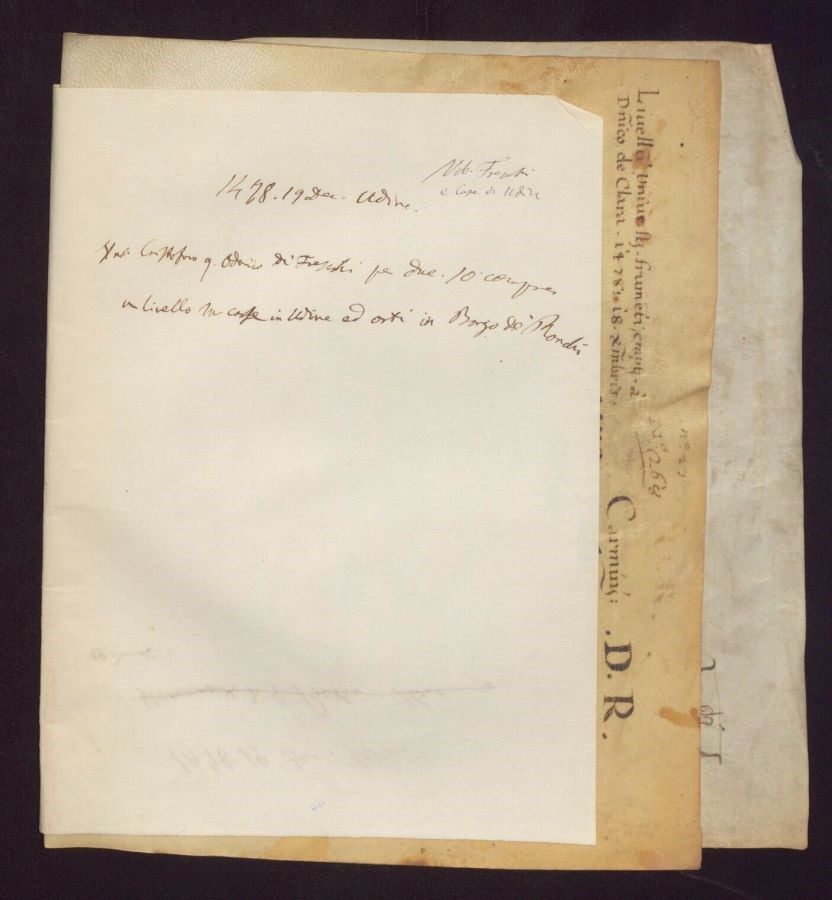 Nob. Freschi
e Case in Udine
1478. 19 Dec. Udine.
Cristoforo q. Odorico Di Freschi per duc. 10 compra
un livello su case in Udine ed orti in Borgo de Ronchi
Livellũ frumẽti, empti à
Dñico de Clara. 1478: 18. Xmbris:
n.° 23
Carminis:
.D.R.